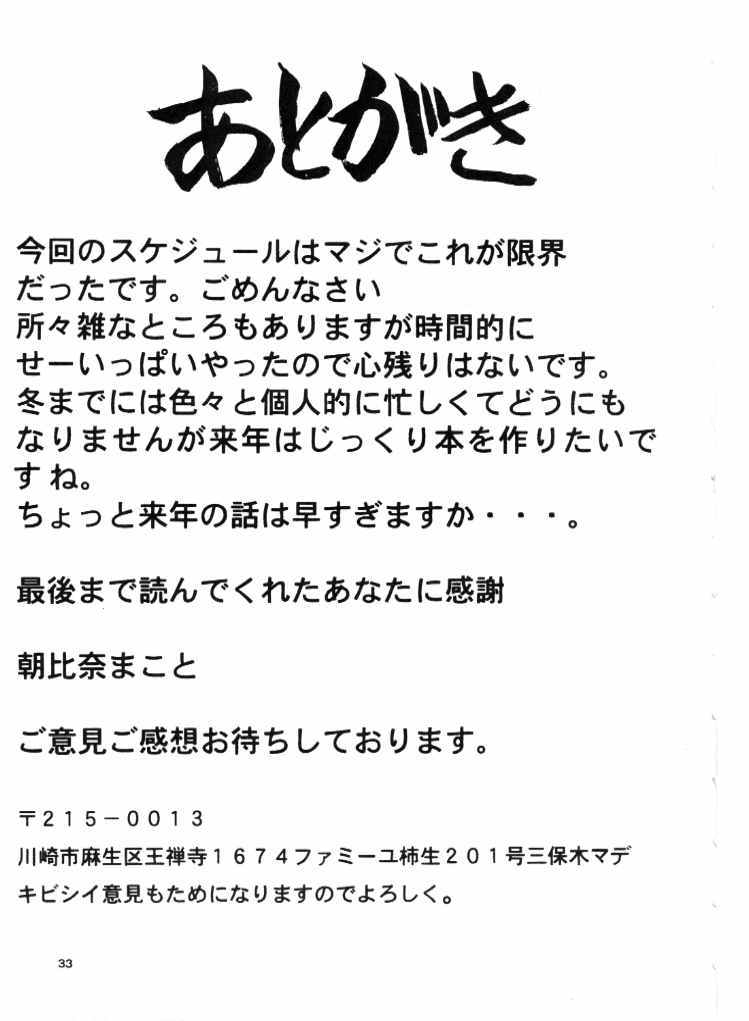 あとがき
今回のスケジュールはマジでこれが限界
だったです。ごめんなさい
所々雑なところもありますが時間的に
せーいっぱいやったので心残りはないです。
冬までには色々と個人的に忙しくてどうにも
なりませんが来年はじっくり本を作りたいで
すね。
ちょっと来年の話は早すぎますか・・・。
最後まで読んでくれたあなたに感謝
朝比奈まこと
ご意見ご感想お待ちしております。
〒215−0013
川崎市麻生区王禅寺1674ファミーユ柿生201号三保木マデ
キビシイ意見もためになりますのでよろしく。
33